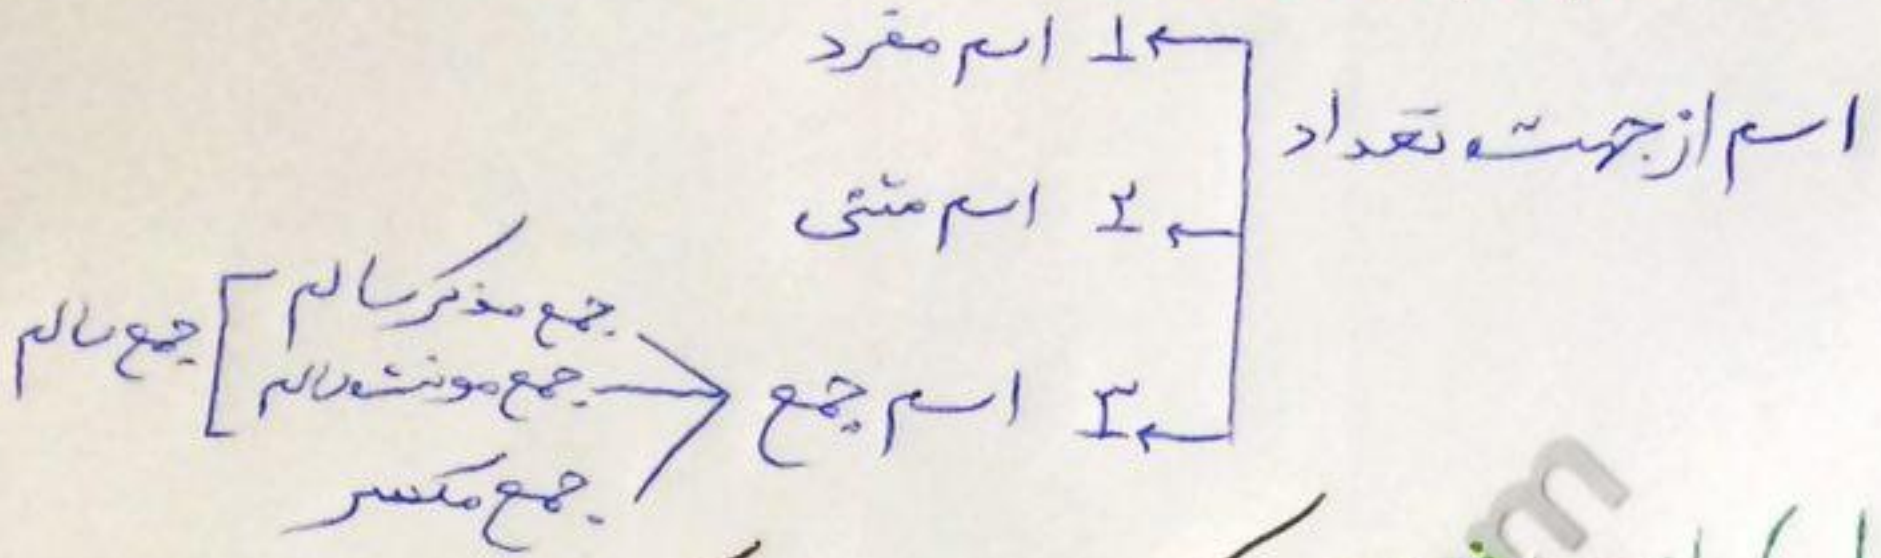 اسم از جهت تعداد
۱ اسم مفرد
۲ اسم مثنی
۳ اسم جمع
جمع مذکر سالم
جمع مونث سالم
جمع سالم
جمع مکسر
m